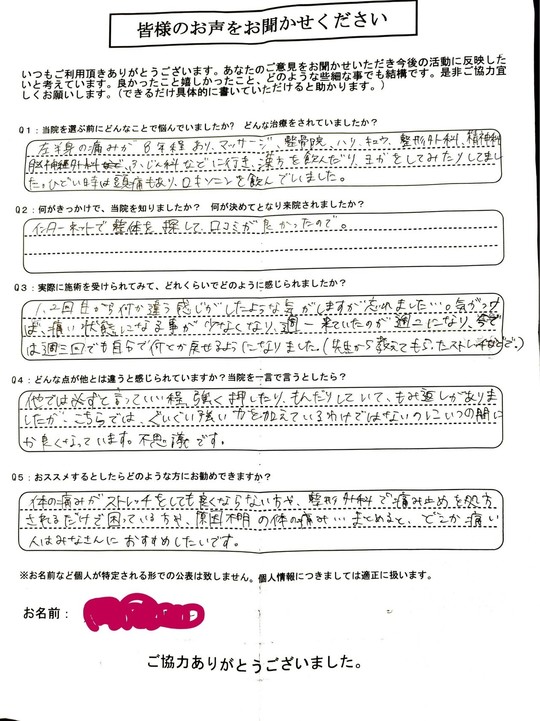 皆様のお声をお聞かせください
いつもご利用頂きありがとうございます。あなたのご意見をお聞かせいただき今後の活動に反映した
いと考えています。良かったこと嬉しかったこと、どのような些細な事でも結構です。是非ご協力宜
しくお願いします。（できるだけ具体的に書いていただけると助かります。）
Q1：当院を選ぶ前にどんなことで悩んでいましたか? どんな治療をされていましたか?
左半身の痛みが8年程あり、マッサージ、整骨院、ハリ、キュウ、整形外科、精神科
脳神経外科など、ふじん科などに行き、漢方を飲んだり、ヨガをしてみたりしてまし
た。ひどい時は頭痛もあり、ロキソニンを飲んでいました。
Q2：何がきっかけで、当院を知りましたか? 何が決めてとなり来院されましたか?
インターネットで整体を探して、口コミが良かったので。
Q3：実際に施術を受けられてみて、どれくらいでどのように感じられましたか?
1、2回目から何か違う感じがしたような気がしますが忘れました…。気がつけ
ば、痛い状態になる事が少なくなり、週一来ていたのが週二になり、今で
は週三回でも自分で何とか戻せるようになりました。(先生から教えてもらったストレッチなどで。)
Q4：どんな点が他とは違うと感じられていますか？当院を一言で言うとしたら?
他では必ずと言っていい程、強く押したり、もんだりしていて、もみ返しがありま
したが、こちらでは、ぐいぐい強い力を加えているわけではないのにいつの間に
か良くなっています。不思議です。
Q5：おススメするとしたらどのような方にお勧めできますか?
体の痛みがストレッチをしても良くならない方や、整形外科で痛み止めを処方
されるだけで困っている方や、原因不明の体の痛み…まとめると、どこか痛い
人はみなさんにおすすめしたいです。
※お名前など個人が特定される形での公表は致しません。個人情報につきましては適正に扱います。
お名前：
ご協力ありがとうございました。